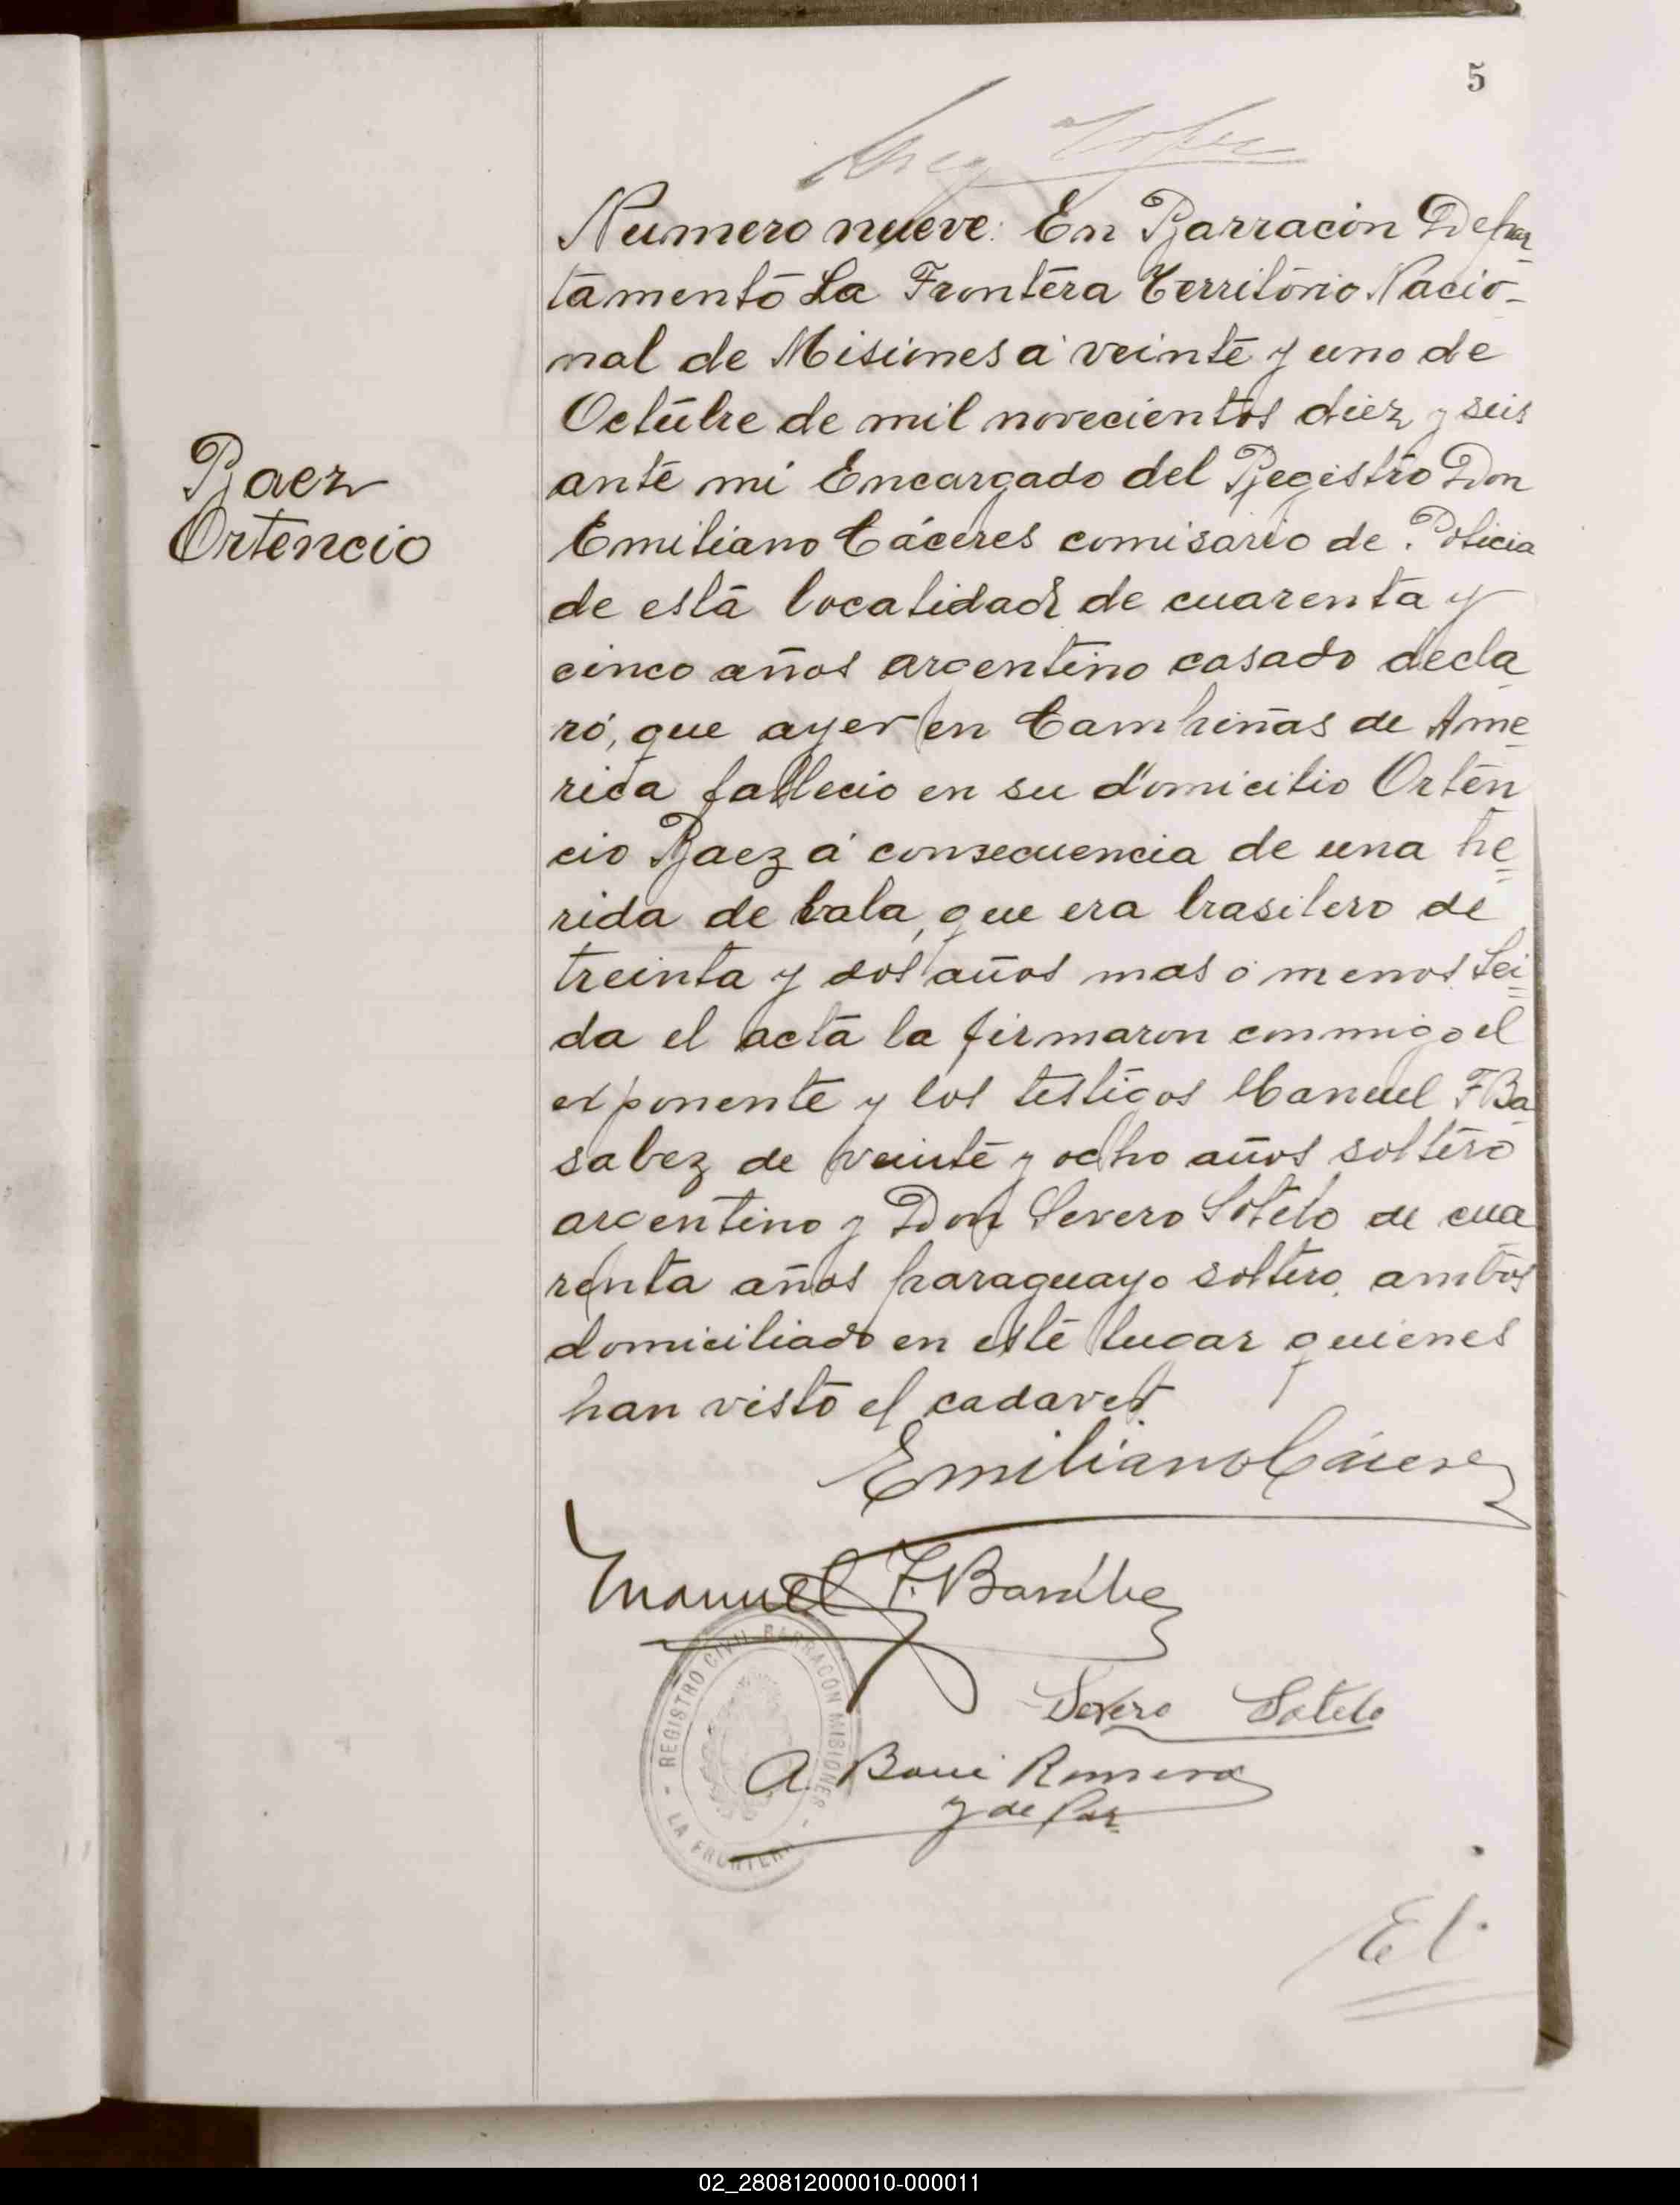 5
Numero nueve: En Barracón Depar
tamento La Frontera Territorio Nacio-
nal de Misiones á veinte y uno de
Octubre de mil novecientos diez y seis
ante mi Encargado del Registro Don
Emiliano Cáceres comisario de Policia
de esta localidad de cuarenta y
cinco años argentino casado decla
ró, que ayer en Campiñas de Ame
rica fallecio en su domicilio Orten
cio Baez á consecuencia de una he
rida de bala, que era brasilero de
treinta y dos años mas o menos Lei
da el acta la firmaron conmigo el
exponente y los testigos Manuel F Ba
sabez de veinte y ocho años soltero
argentino y Don Severo Sotelo de cua
renta años paraguayo soltero, ambos
domiciliado en este lugar quienes
han visto el cadaver
Baez
Ortencio
Emiliano Cáceres
Manuel F. Basabez
Severo Sotelo
A. Romero
y de Paz
REGISTRO CIVIL BARRACON MISIONES
- LA FRONTERA -
El
02_280812000010-000011